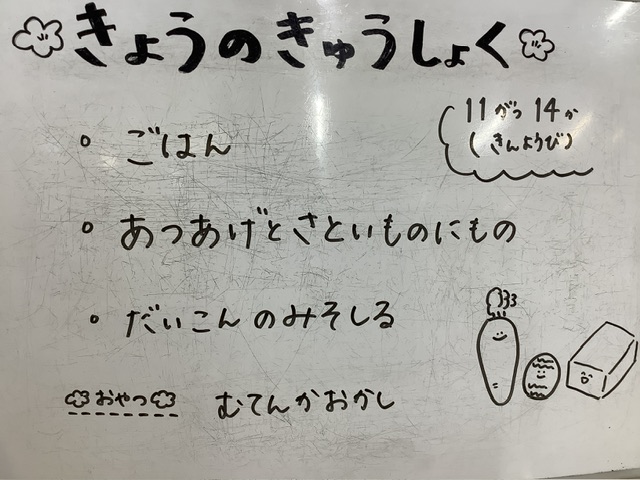 きょうのきゅうしょく
11がつ14か
(きんようび)
・ごはん
・あつあげとさといものにもの
・だいこんのみそしる
おやつ むてんかおかし